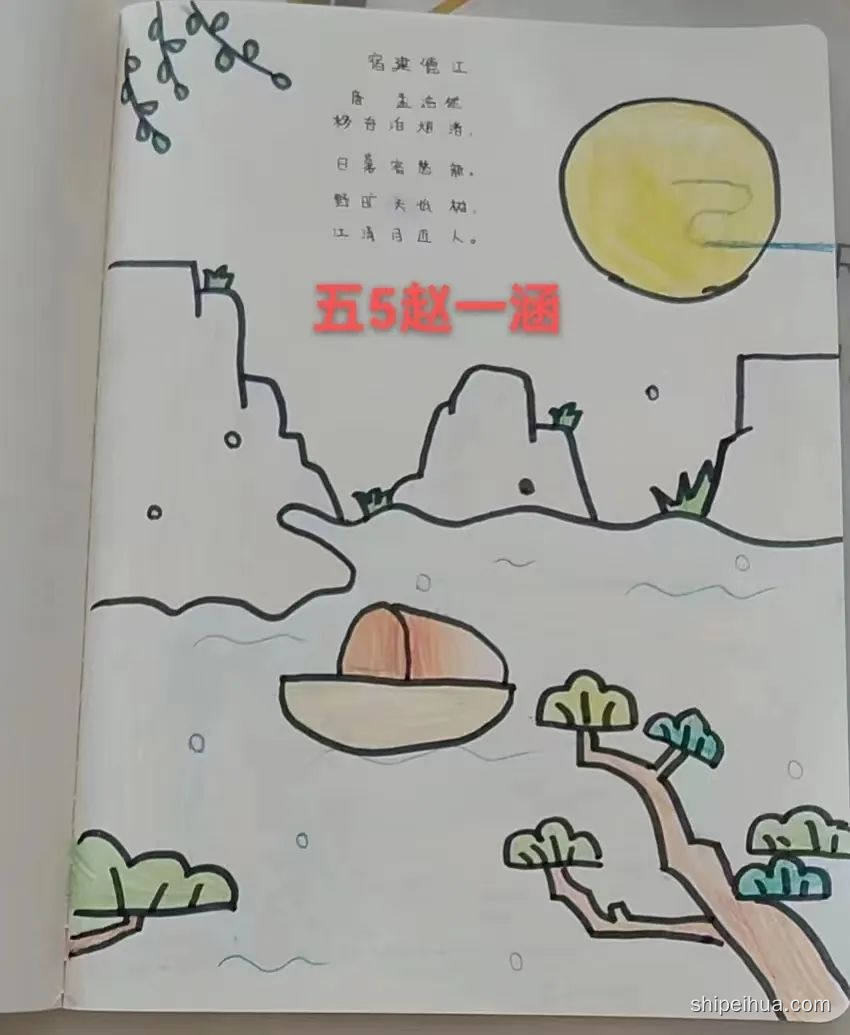 宿建德江
唐 孟浩然
移舟泊烟渚，
日暮客愁新。
野旷天低树，
江清月近人。
五5赵一涵
shipeihua.com